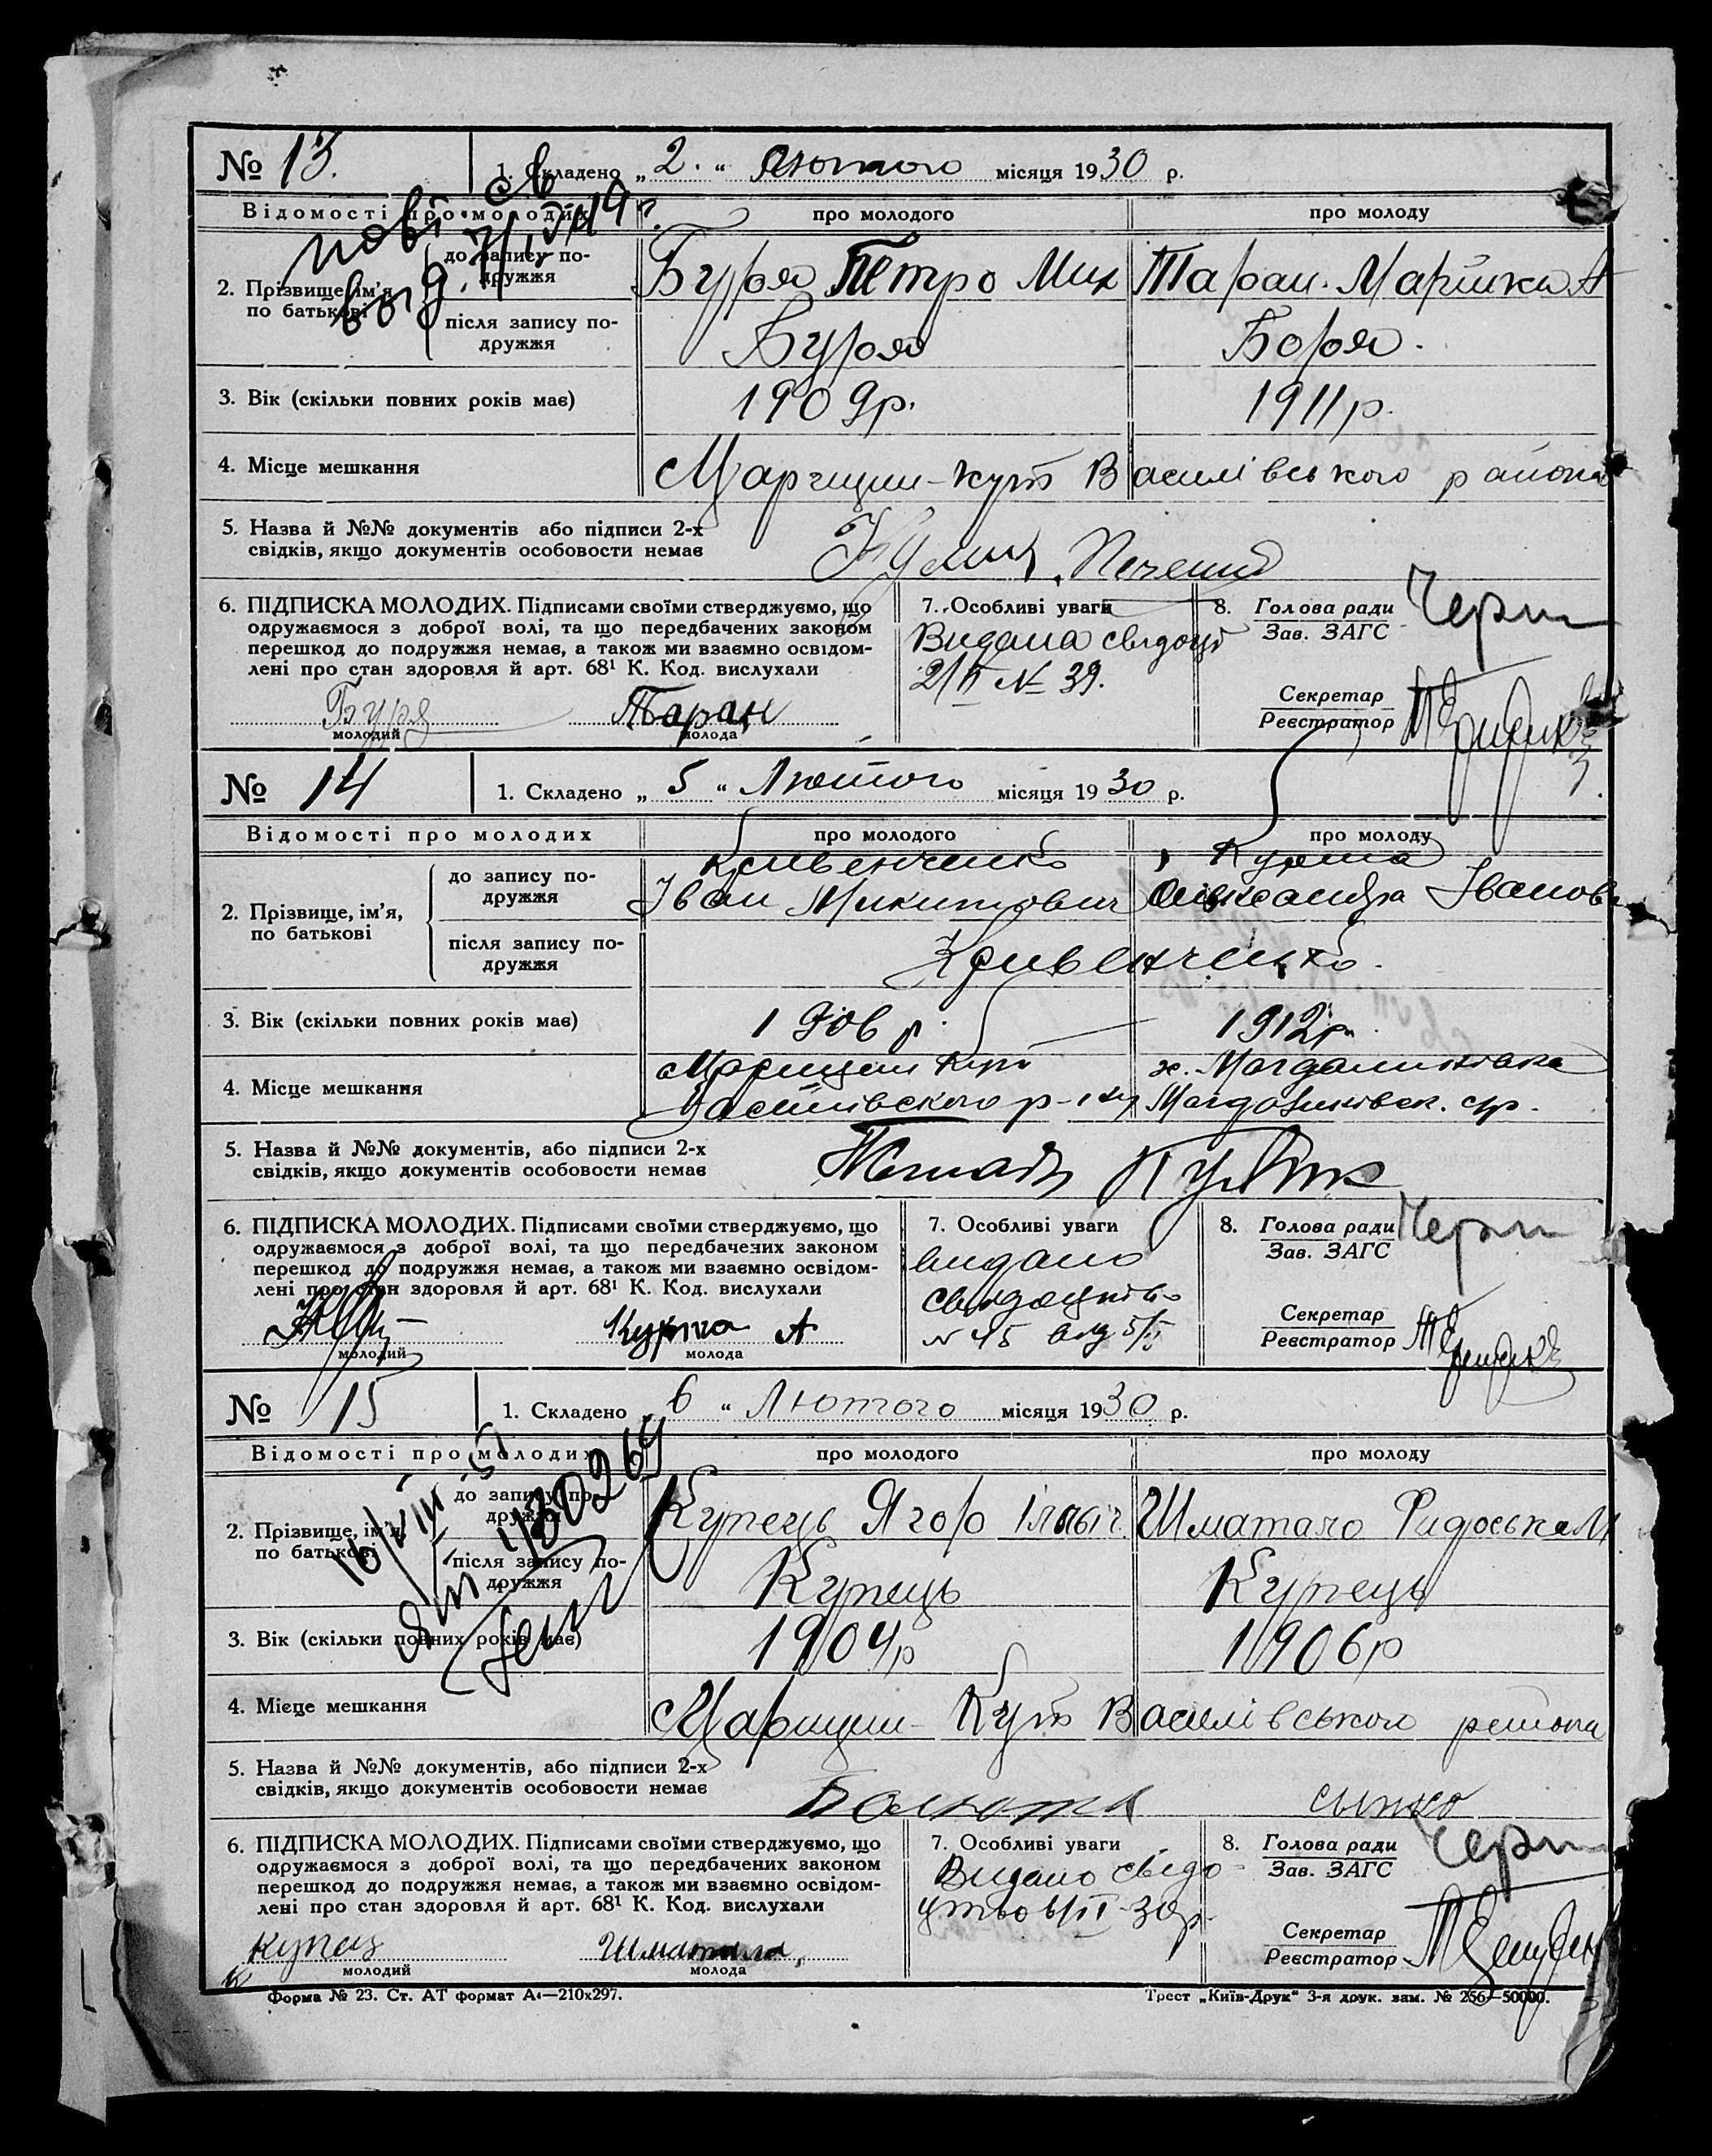 № 13. 1. Складено „ 2. “ Лютого місяця 1930 р.
Відомості про молодих про молодого про молоду
2. Прізвище, ім’я, по батькові
до запису подружжя
Буря Петро Мих Таран Марійка А
після запису подружжя
Буря Боря.
3. Вік (скільки повних років має) 1909р. 1911р.
4. Місце мешкання Царицин-кут Василівського района
5. Назва й №№ документів або підписи 2-х
свідків, якщо документів особовости немає
6. ПІДПИСКА МОЛОДИХ. Підписами своїми стверджуємо, що
одружаємося з доброї волі, та що передбачених законом
перешкод до подружжя немає, а також ми взаємно освідом-
лені про стан здоровля й арт. 68¹ К. Код. вислухали
Буря Таран
молодий молода
7. Особливі уваги
Видана свідоцт
2/II № 39.
8. Голова ради
Зав. ЗАГС
Секретар
Реєстратор
№ 14 1. Складено „ 5 “ Лютого місяця 1930 р.
Відомості про молодих про молодого про молоду
2. Прізвище, ім’я,
по батькові
до запису по-
дружжя
Кривенченко Кукта
Іван Микитович Олександра Іванов
після запису по-
дружжя
Кривенченко.
3. Вік (скільки повних років має) 1906 р. 1912р.
4. Місце мешкання
Царицин Кут х. Магдалинівка
Василівского р-ну Магдалинівск. с/р.
5. Назва й №№ документів, або підписи 2-х
свідків, якщо документів особовости немає
6. ПІДПИСКА МОЛОДИХ. Підписами своїми стверджуємо, що
одружаємося з доброї волі, та що передбачених законом
перешкод до подружжя немає, а також ми взаємно освідом-
лені про стан здоровля й арт. 68¹ К. Код. вислухали
Кукта А
молодий молода
7. Особливі уваги
видано
свидоцтво
№ 45 від 5/II
8. Голова ради
Зав. ЗАГС
Секретар
Реєстратор
№ 15 1. Складено „ 6 “ Лютого місяця 1930 р.
Відомості про молодих про молодого про молоду
2. Прізвище, ім’я,
по батькові
до запису по-
дружжя
Купець Ягор Ілыіч. Шматало Фидоська М
після запису по-
дружжя
Купець Купець
3. Вік (скільки повних років має) 1904р 1906р
4. Місце мешкання Царицин-Кут Василівського района
5. Назва й №№ документів, або підписи 2-х
свідків, якщо документів особовости немає
6. ПІДПИСКА МОЛОДИХ. Підписами своїми стверджуємо, що
одружаємося з доброї волі, та що передбачених законом
перешкод до подружжя немає, а також ми взаємно освідом-
лені про стан здоровля й арт. 68¹ К. Код. вислухали
купец Шматала
молодий молода
7. Особливі уваги
Видано свідо-
цтво 6/II-30р.
8. Голова ради
Зав. ЗАГС
Секретар
Реєстратор
Форма № 23. Ст. АТ формат А4—210х297. Трест „Київ-Друк“ 3-я друк. зам. № 256—50000.